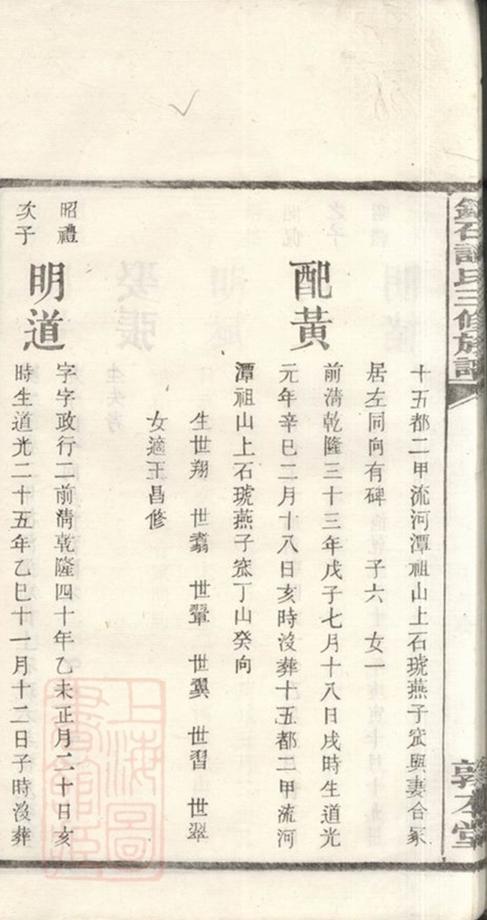 石譚氏三修族譜
敦本堂
十五都二甲流河潭祖山上石琥燕子窊與妻合冢
居左同向有碑 子六 女一
配黃
前清乾隆三十三年戊子七月十八日戌時生道光
元年辛巳二月十八日亥時沒葬十五都二甲流河
潭祖山上石琥燕子窊丁山癸向
生世翔 世翥 世翬 世翼 世習 世翠
女適王昌修
昭禮
次子
明道
字字政行二前清乾隆四十年乙未正月二十日亥
時生道光二十五年乙巳十一月十二日子時沒葬
上海圖書館藏